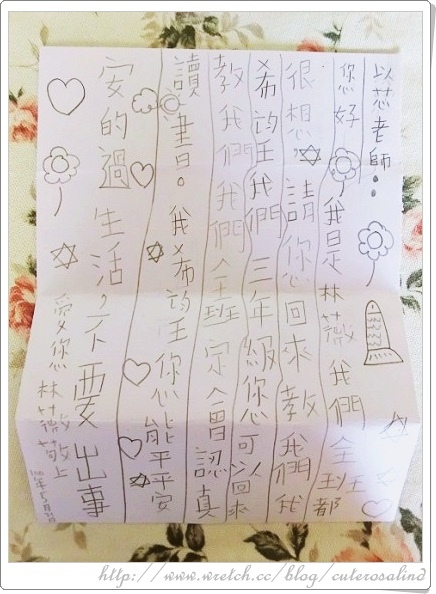 以慈老師:
您好!我是林薇 我們全班都
很想 請您回來教我們我
希望我們三年級您可以回來
教我們我們全班定會認真
讀書。我希望您能平平安
安的過生活,不要出事
愛您 林薇 敬上
http://www.wretch.cc/blog/cuterosalind